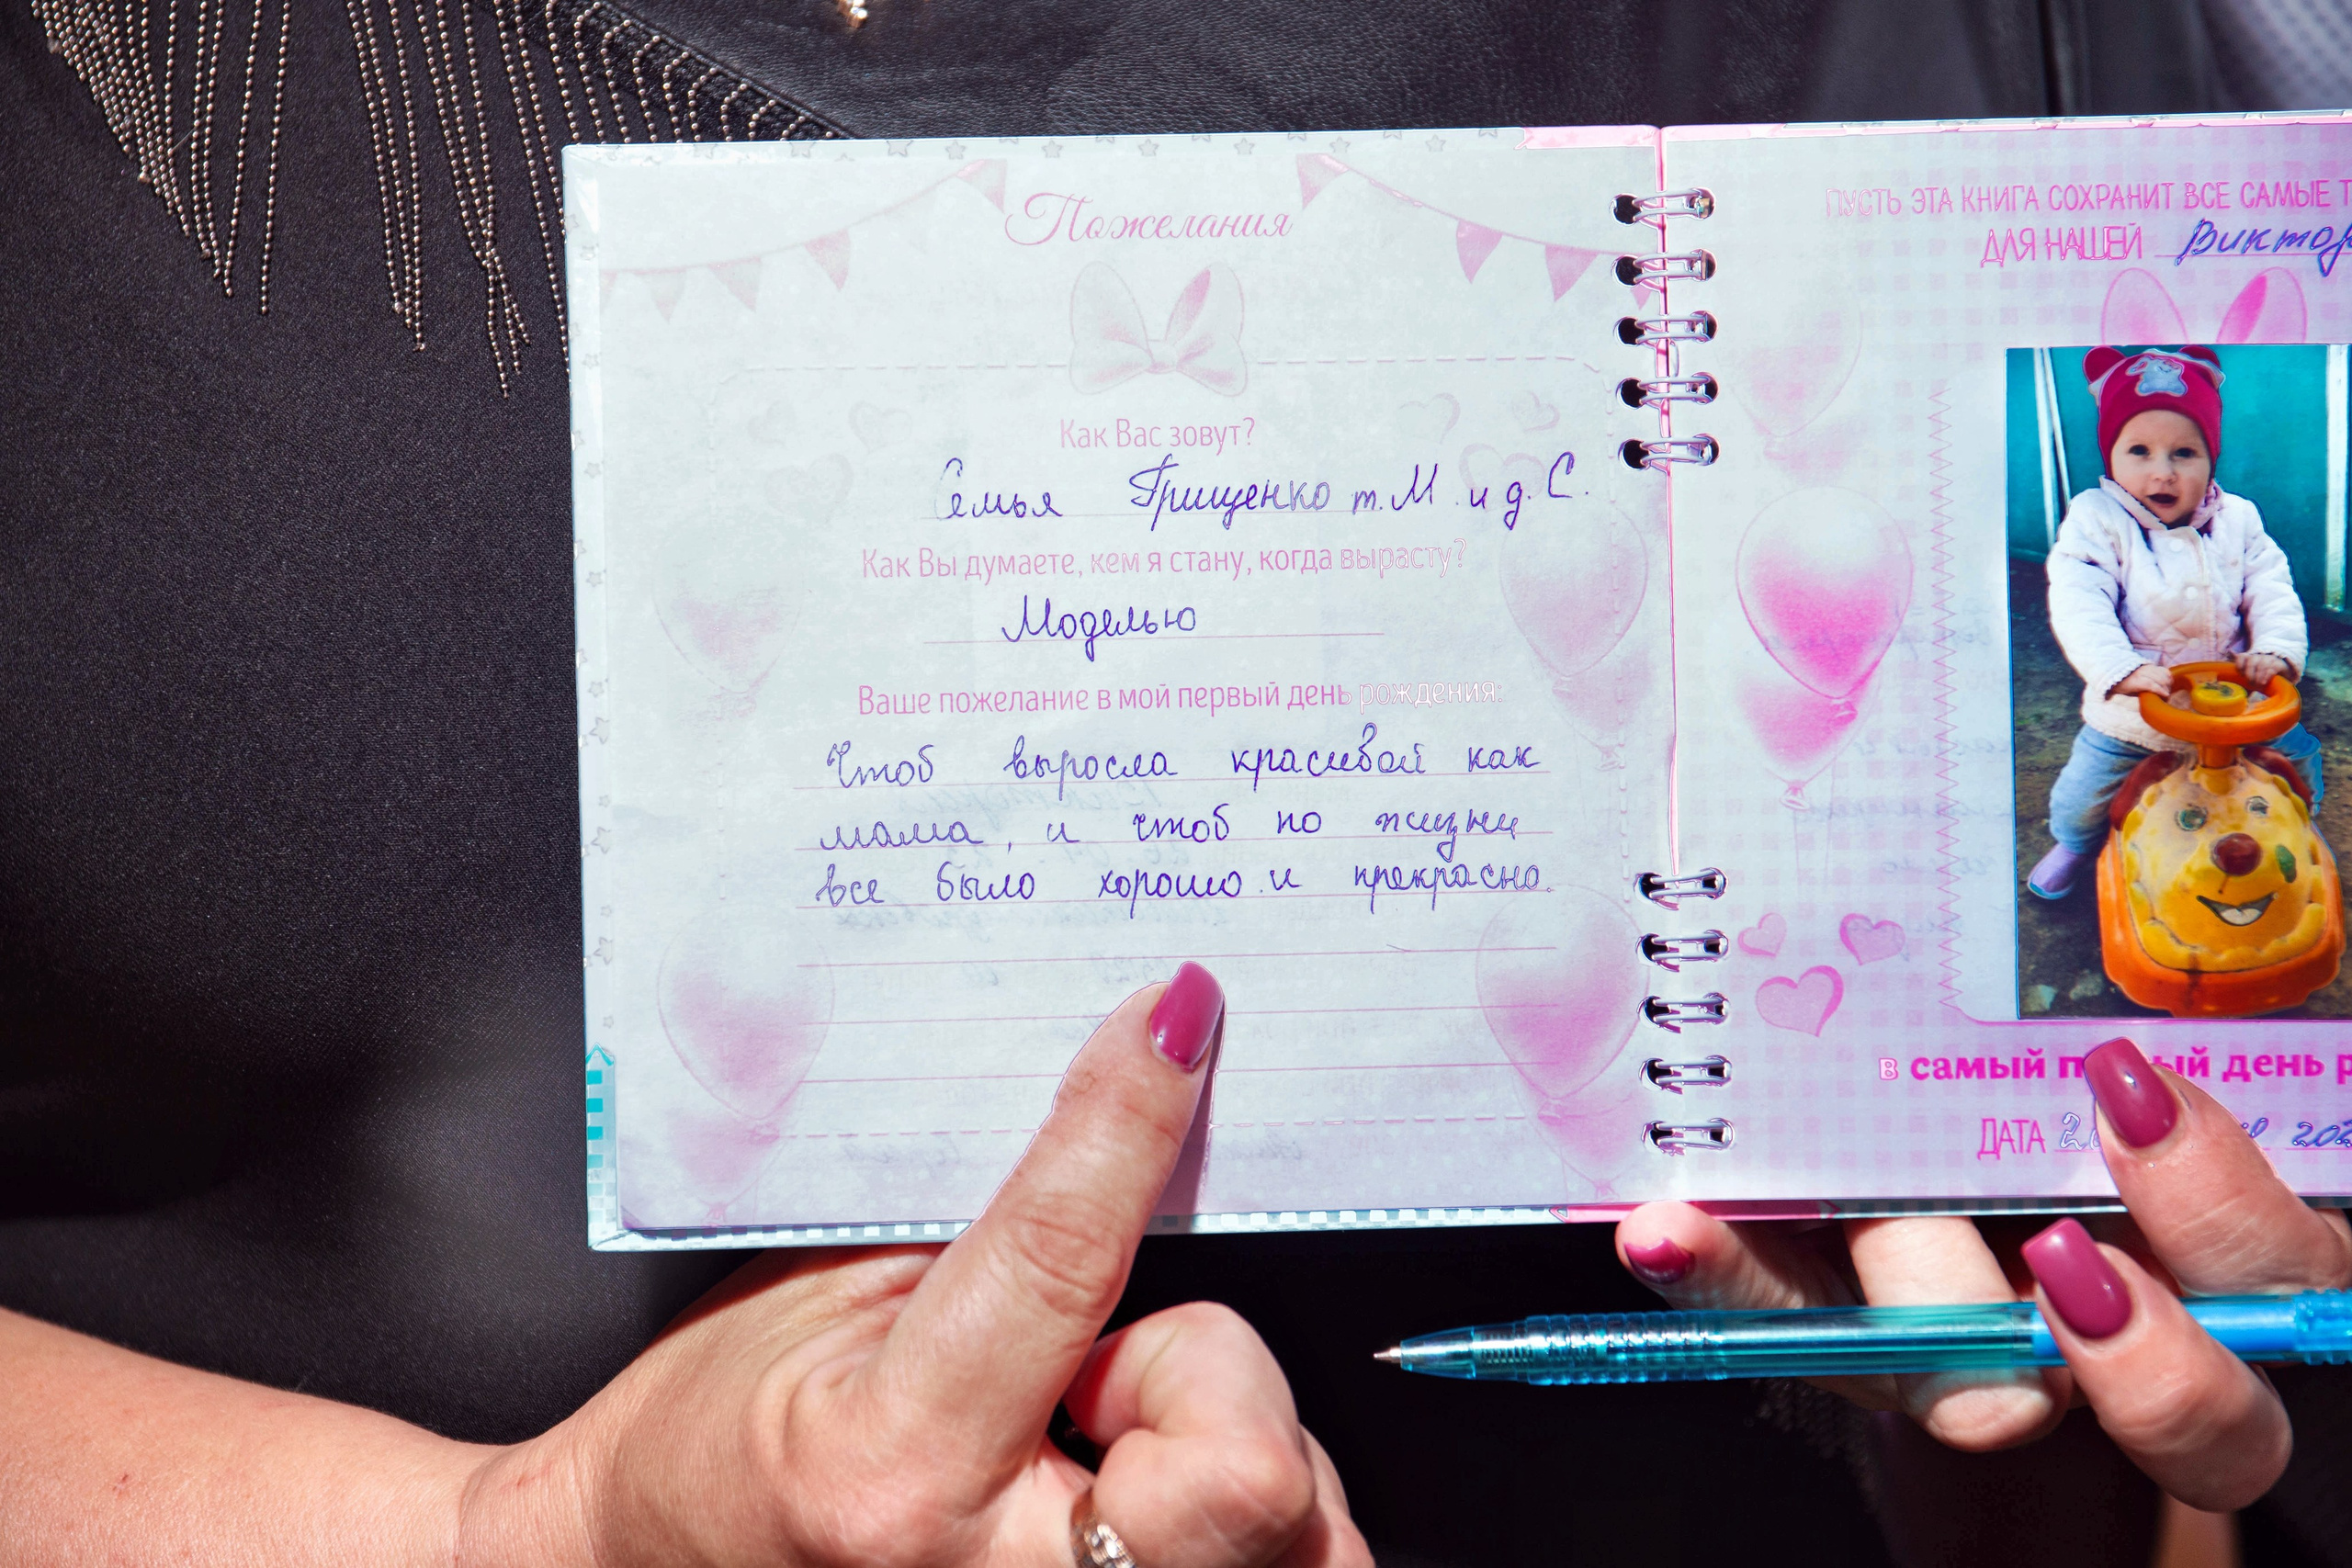 Пожелания
Как Вас зовут?
Семья Грищенко т.М. и д.С.
Как Вы думаете, кем я стану, когда вырасту?
Моделью
Ваше пожелание в мой первый день рождения:
Чтоб выросла красивой как
мама, и чтоб по жизни
все было хорошо и прекрасно.
ПУСТЬ ЭТА КНИГА СОХРАНИТ ВСЕ САМЫЕ
ДЛЯ НАШЕЙ Виктор
в самый день
ДАТА